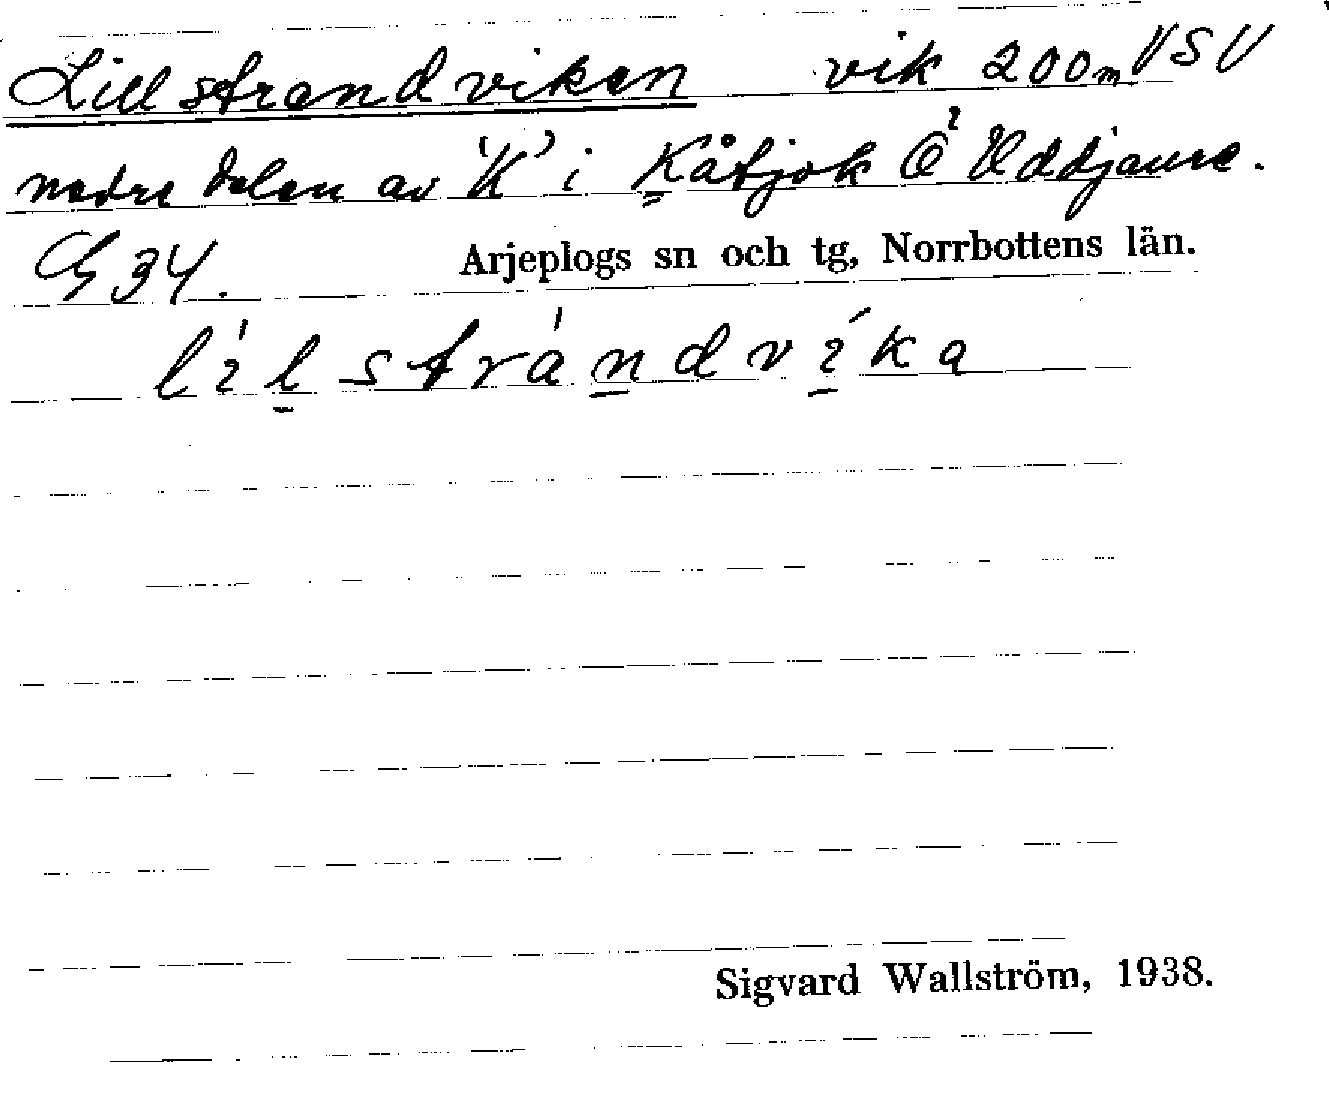 Lillstrandviken vik 200m VSV
nedre delen av 'K' i Kåtjok Ö Uddjaure.
G 34. Arjeplogs sn och tg, Norrbottens län.
lìlstràndvíka
Sigvard Wallström, 1938.